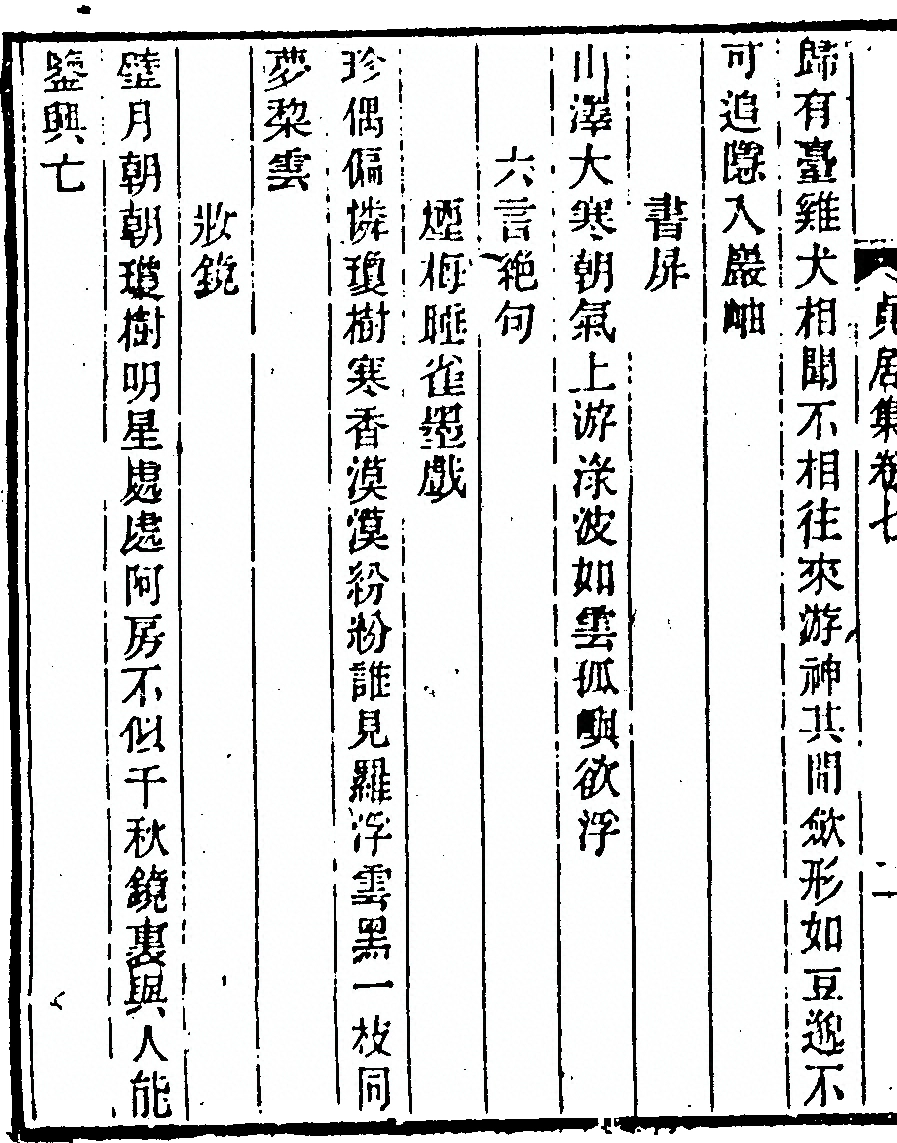 貞居集卷七
二
歸有臺雞犬相聞不相往來游神其間斂形如豆邈不
可追隱入巖岫
書屏
山澤大寒朝氣上游淥波如雲孤嶼欲浮
六言絶句
煙梅睡雀墨戲
珍偶偏憐瓊樹寒香漠漠紛紛誰見羅浮雲黑一枝同
夢黎雲
妝鏡
璧月朝朝瓊樹明星處處阿房不似千秋鏡裏與人能
鑒興亡